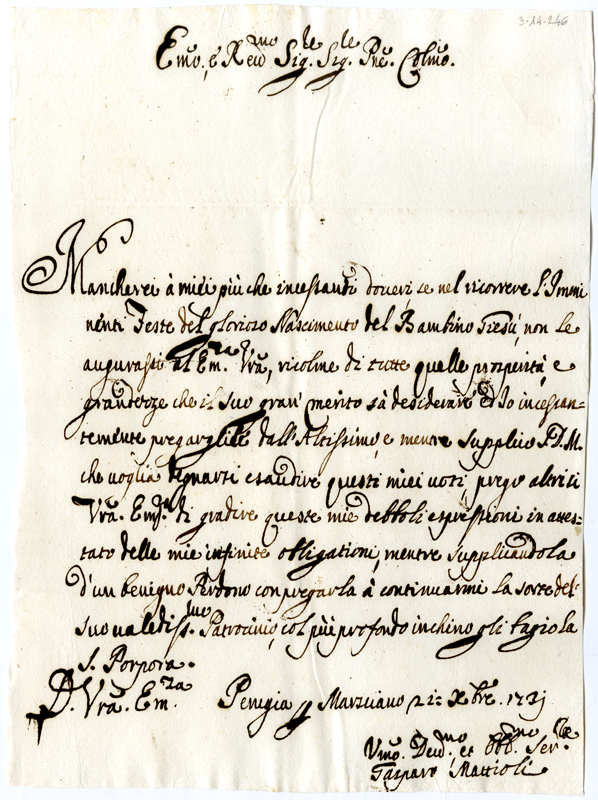 3-14-246
Emo, e Reùmo Sig.le Sig.le Pne. Colmo.
Mancherei à miei più che incessandi doueri, se nel ricorrere l'Immi
nenti Feste del glorioso Nascimento del Bambino Giesù, non le
augurassi al Em.za Vrã, ricolme di tutte quelle prosperità, e
grandezze che il suo gran' merito sà desiderare ed Io incessan=
temente pregargliele dall'Altissimo, e mentre supplico S.D.M.
che uoglia degnarsi esaudire questi miei uoti, prego altresi
Vrã. Emza. di gradire queste mie debboli espressioni in attes-
tato delle mie infinite obligationi, mentre supplicandola
d'un benigno Perdono con pregarla à continuarmi la sorte del
suo ualediss.mo Patrocinio, col più profondo inchino gli bagio la
S. Porpora.
D. Vrã. Em.za Perugia p Marsciano 21: Xbre. 1731
Vmo. Deud.mo et Obb.mo Ser.re
Gasparo Mattioli